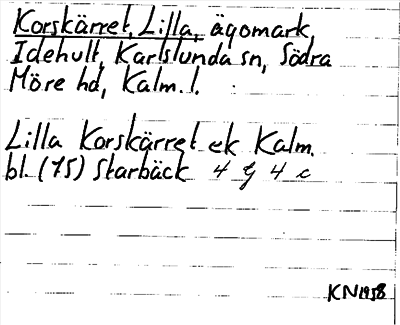 Korskärret, Lilla, ägomark,
Idehult, Karlslunda sn, Södra
Möre hd, Kalm. l.
Lilla Korskärret ek Kalm.
bl. (75) Starbäck 4 G 4 c
KN 1958